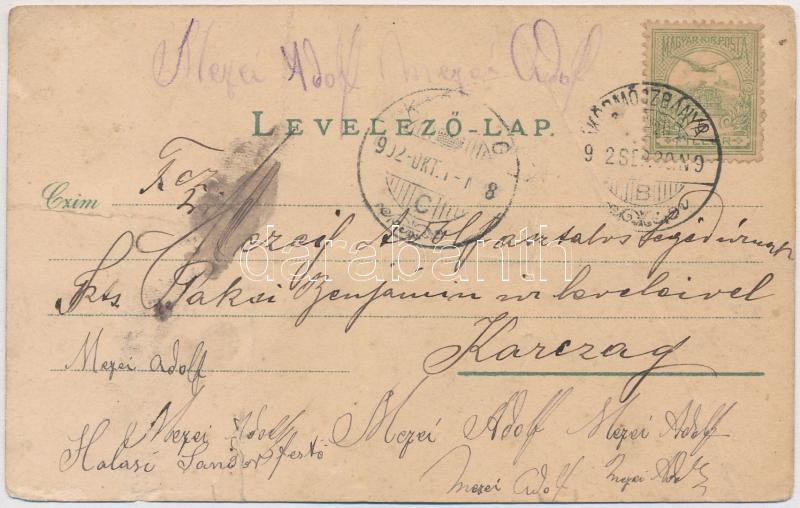 Mezei Adolf Mezei Adolf
MAGYAR KIR. POSTA
LEVELEZŐ-LAP.
KÖRMÖCZBÁNYA
902-OKT.
8
C
B
Czim
Mezei Adolf asztalos segéd úrnak
Tkts Paksi Benjámin úr leveleivel
Karczag
Mezei Adolf
Mezei Adolf Mezei Adolf Mezei Adolf
Halasi Sándor festő
Mezei Adolf Mezei Adolf
darabanth